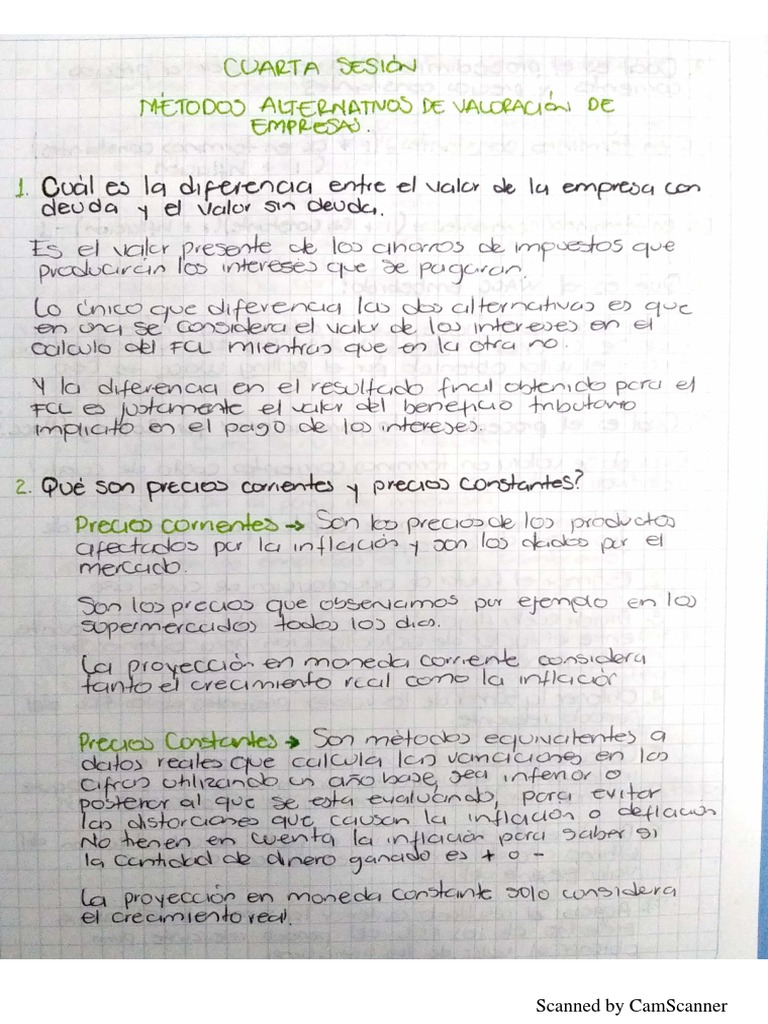 CUARTA SESIÓN
MÉTODOS ALTERNATIVOS DE VALORACIÓN DE
EMPRESAS.
1. Cuál es la diferencia entre el valor de la empresa con
deuda y el valor sin deuda.
Es el valor presente de los ahorros de impuestos que
producirán los intereses que se pagaran.
Lo único que diferencia las dos alternativas es que
en una se considera el valor de los intereses en el
calculo del FCL mientras que en la otra no.
Y la diferencia en el resultado final obtenido para el
FCL es justamente el valor del beneficio tributario
implicito en el pago de los intereses.
2. Qué son precios corrientes y precios constantes?
Precios corrientes → Son los precios de los productos
afectados por la inflación y son los dados por el
mercado.
Son los precios que observamos por ejemplo en los
supermercados todos los dias.
La proyección en moneda corriente considera
tanto el crecimiento real como la inflación
Precios Constantes → Son métodos equivalentes a
datos reales que calcula las variaciones en las
cifras utilizando un año base, sea inferior o
posterior al que se esta evaluando, para evitar
las distorciones que causan la inflación o deflación
No tienen en cuenta la inflación para saber si
la cantidad de dinero ganado es + o -
La proyección en moneda constante solo considera
el crecimiento real.
Scanned by CamScanner